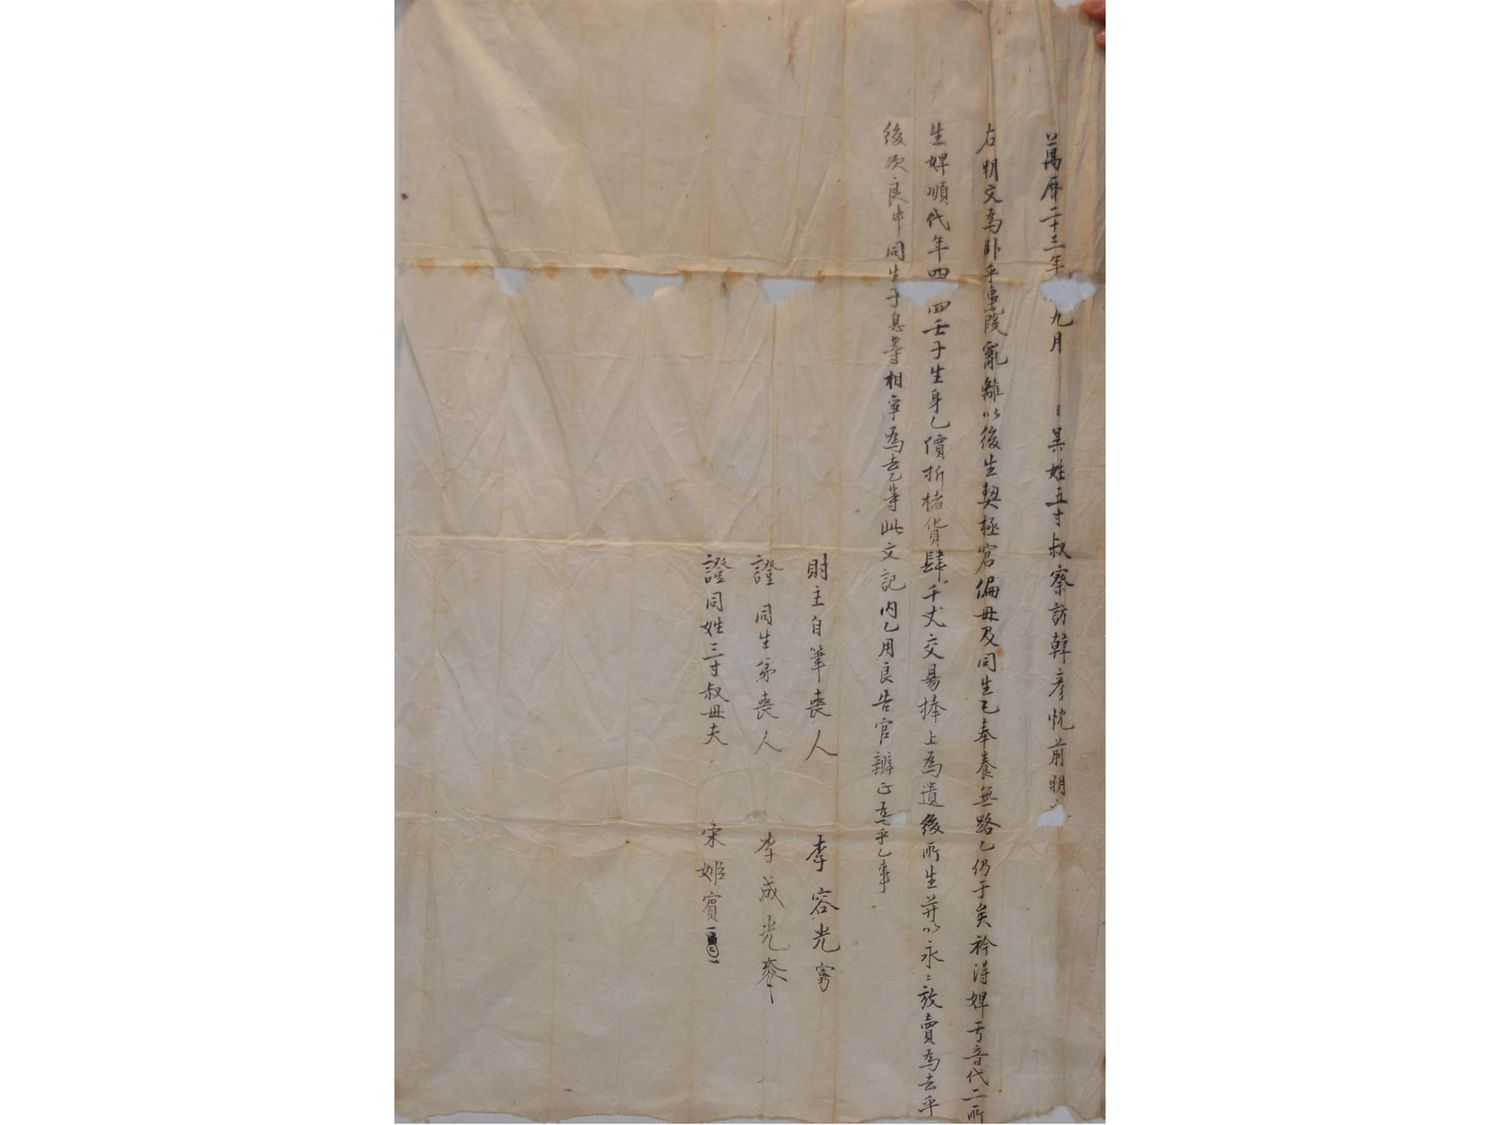 萬曆二十三年 九月 日異姓五寸叔察訪韓彦忱前明
右明文爲卧乎事段亂離以後生契極窘偏母及同生乙奉養無路乙仍于矣衿得婢亏音代二所
生婢順代年四 四壬子生身乙價折楮貨肆千丈交易捧上爲遣後所生幷以永〻放賣爲去乎
後次良中同生子息等相爭爲去乙等此文記內乙用良告官辨正爲乎乙事
財主自筆喪人 李容光
證同生弟喪人 李成光
證同姓三寸叔母夫 宋姬賓